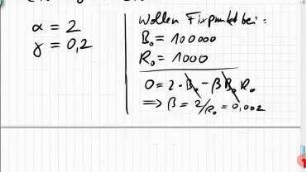 α = 2
γ = 0,2
Wollen Fixpunkt bei:
B₀ = 100000
R₀ = 1000
0 = 2·B₀ - βB₀R₀
⇒ β = 2/R₀ = 0,002